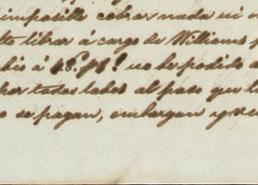 imposible cobrar nada ni
librar á cargo de Williams
á no he podido
por todos lados al paso que
no se pagan, embargan y